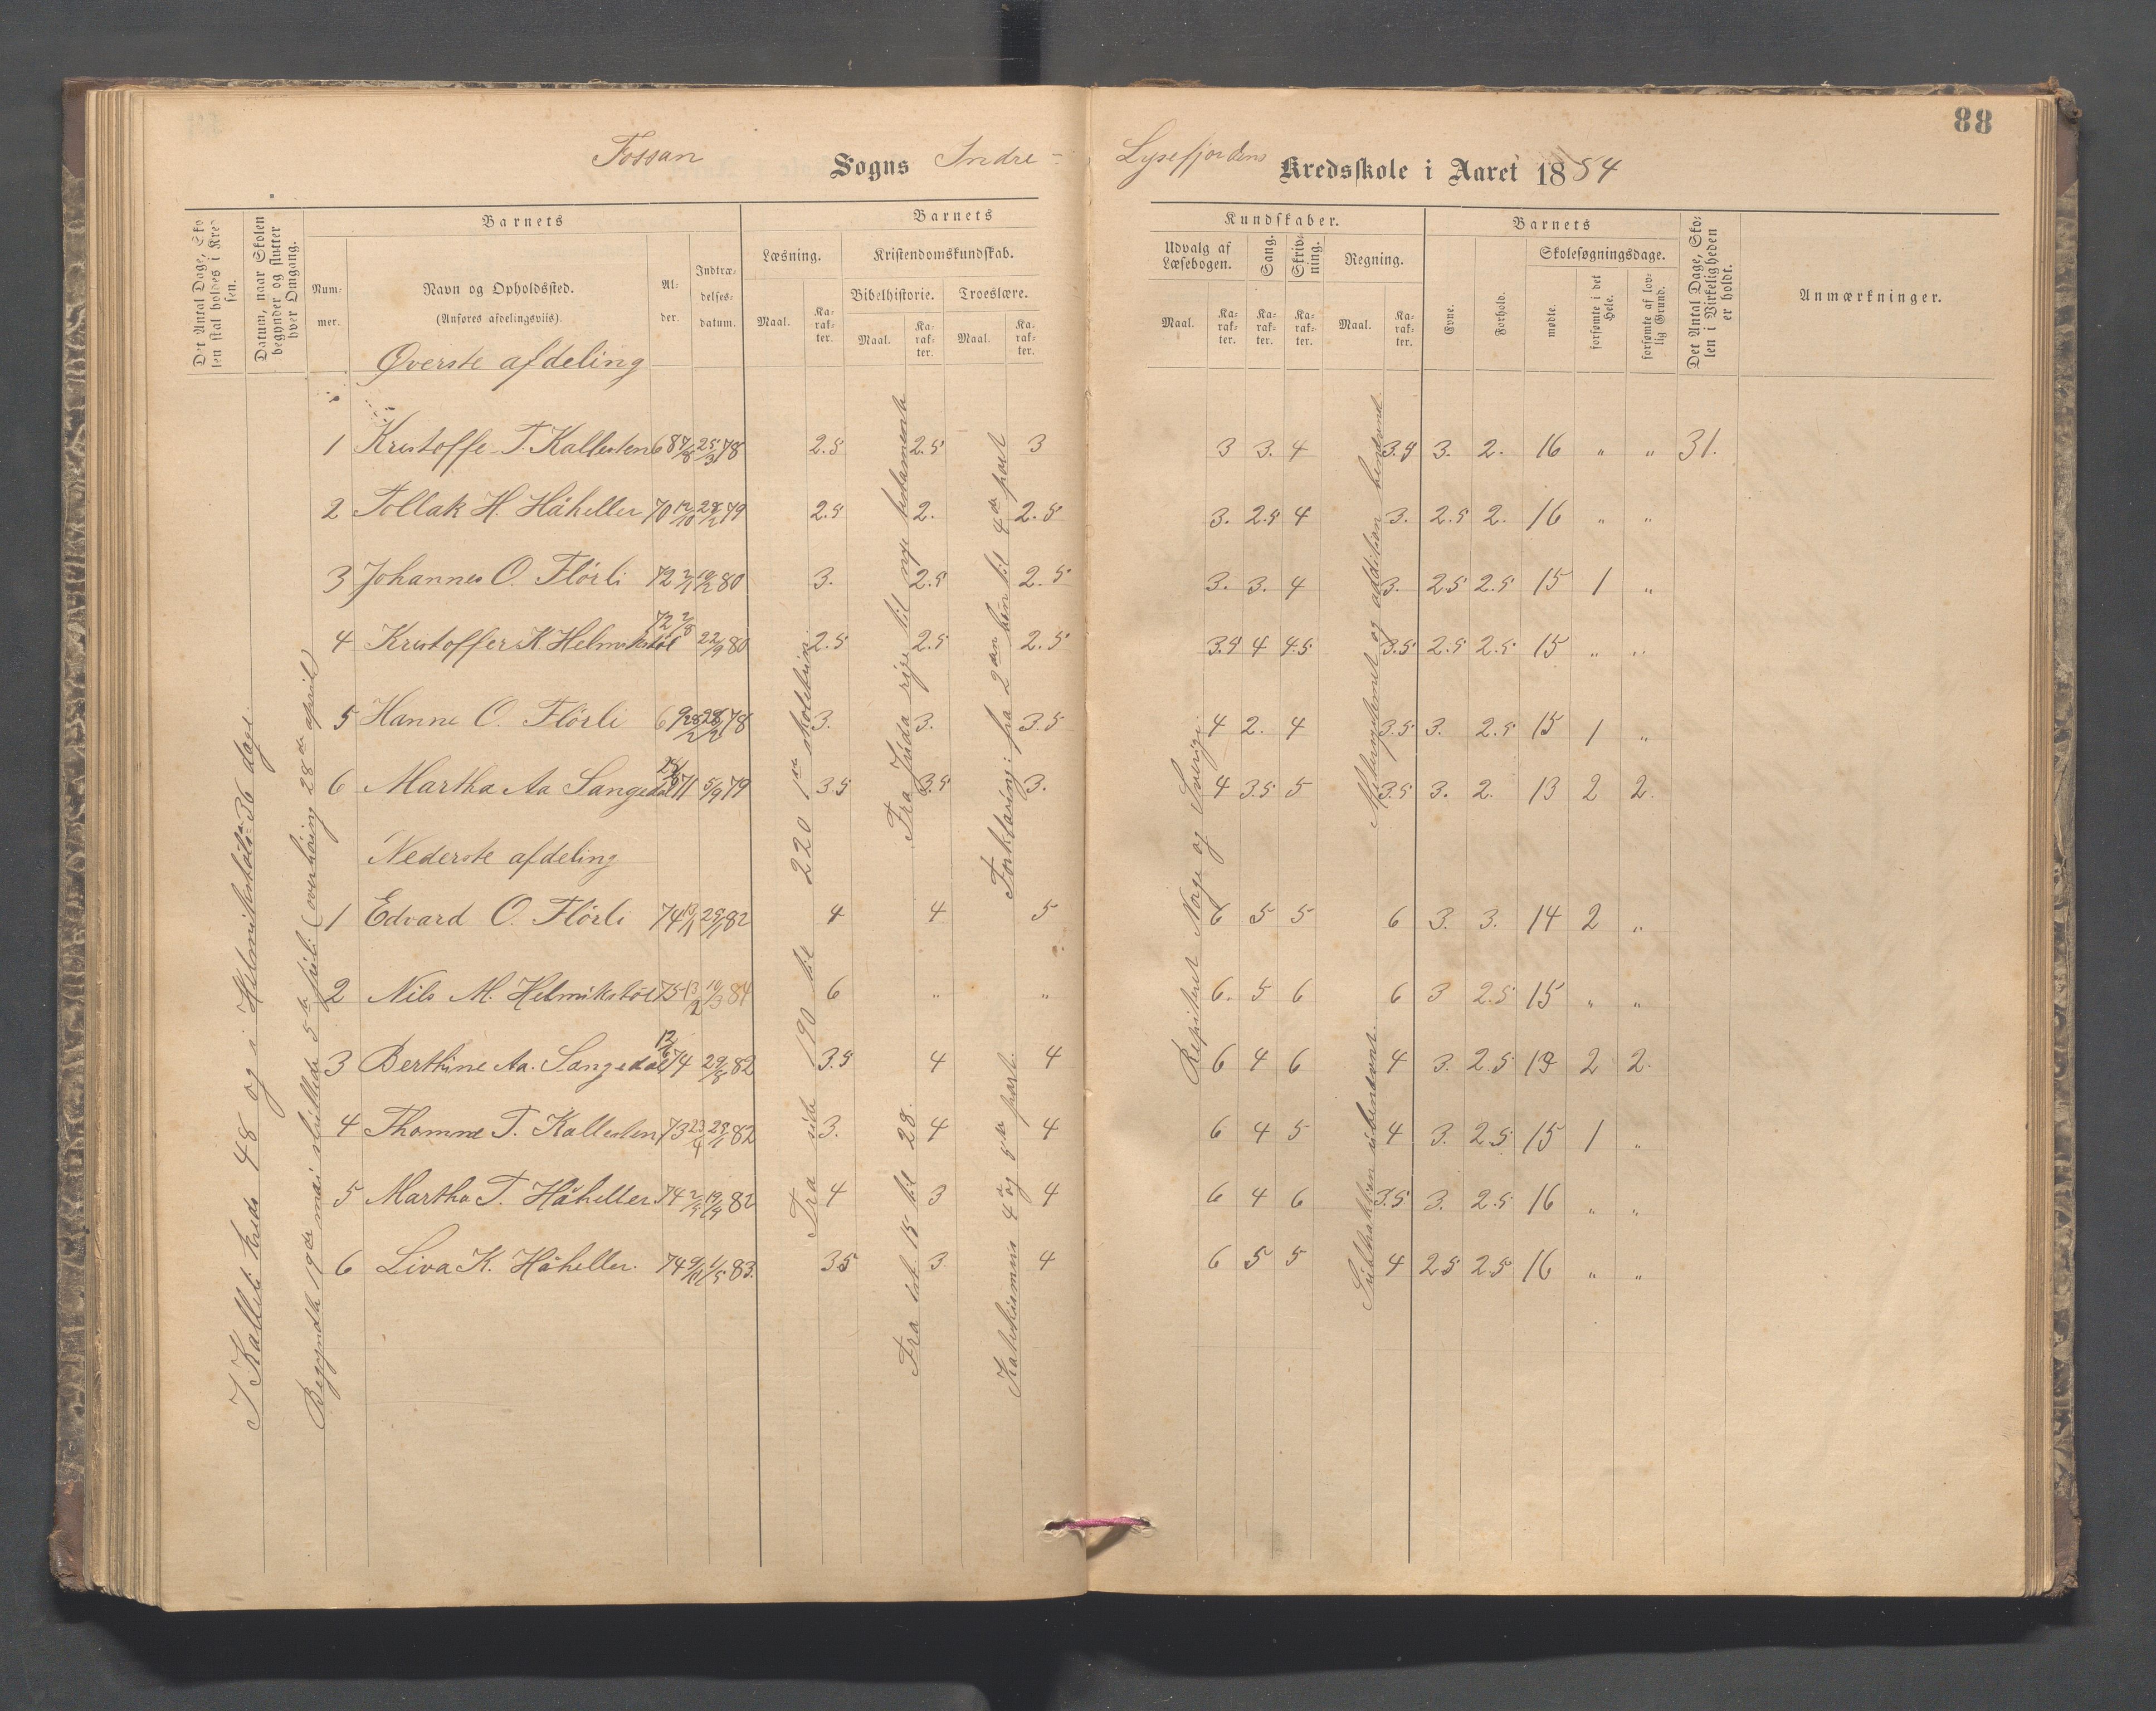 88
Fossan Sogns Indre- Lysefjordens Kredsskole i Aaret 1884
Det Antal Dage, Skolen skal holdes i Kredsen.
Datum, naar Skolen begynder og slutter hver Omgang.
Barnets
Nummer.
Navn og Opholdssted.
(Anføres afdelingsviis).
Alder.
Indtrædelsesdatum.
Barnets
Læsning.
Maal.
Karakter.
Kristendomskundskab.
Bibelhistorie.
Maal.
Karakter.
Troeslære.
Maal.
Karakter.
Kundskaber.
Udvalg af Læsebogen.
Maal.
Karakter.
Sang.
Karakter.
Skrivning.
Karakter.
Regning.
Maal.
Karakter.
Barnets
Evne.
Forhold.
Skolesøgningsdage.
mødte.
forsømte i det Hele.
forsømte af lovlig Grund.
Det Antal Dage, Skolen i Virkeligheden er holdt.
Anmærkninger.
Øverste afdeling
1 Kristoffe T. Kallesten 68 7/8 25/3 78 2.5 2.5 3 3 3. 4 3.5 3. 2. 16 " " 31.
2 Tollak H. Håheller 70 12/10 28/2 79 2.5 2. 2.5 3. 2.5 4 3. 2.5 2. 16 " "
3 Johannes O. Flörli 72 2/1 19/2 80 3. 2.5 2.5 3. 3. 4 3. 2.5 2.5 15 1 "
4 Kristoffer K. Helmikstöl 72 2/8 22/9 80 2.5 2.5 2.5 3.5 4 4.5 3.5 2.5 2.5 15 " "
5 Hanne O. Flörli 69 28/2 28/2 78 3. 3. 3.5 4 2. 4 3.5 3. 2.5 15 1 "
6 Martha Aa Sangedal 71 5/9 79 3.5 3.5 3. 4 3.5 5 3.5 3. 2. 13 2 2.
Nederste afdeling
1 Edvard O. Flörli 74 13/1 25/1 82 4 4 5 6 5 5 6 3. 3. 14 2 "
2 Nils M. Helmikstöl 75 13/2 19/3 84 6 " " 6. 5 6 6 3 2.5 15 " "
3 Berthine Aa. Sangedal 12/6 74 29/8 82 3.5 4 4 6 4 6 4 3. 2.5 13 2 2.
4 Thomine T. Kallesten 73 23/4 28/1 82 3. 4 4 6 4 5 4 3. 2.5 15 1 "
5 Martha T. Håheller 74 2/5 19/4 82 4 3 4 6 4 6 3.5 3. 2.5 16 " "
6 Liva K. Håheller. 74 9/11 1/5 83. 3.5 3. 4 6 5 5 4 2.5 2.5 16 " "
I Kallest kreds 48 og i Helmikstöls: 36 dage.
Begyndte 19de mai sluttede 5te juli (overhöring 28de april)
Fra side 190 til 220 1ste skoletrin.
Fra Juda rige til nye testamente
Fra stk 15 til 28.
Forklaring: fra 2den bön til 4de part
Katekismus 4de og 5te part.
Repiteret Norge og Sverige
Metersystemet og addition benævnt
Subtraktion ubenævnt.